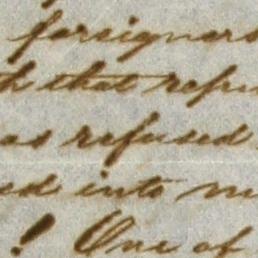 foreigners
that refu
as refused
ed into m
! One of